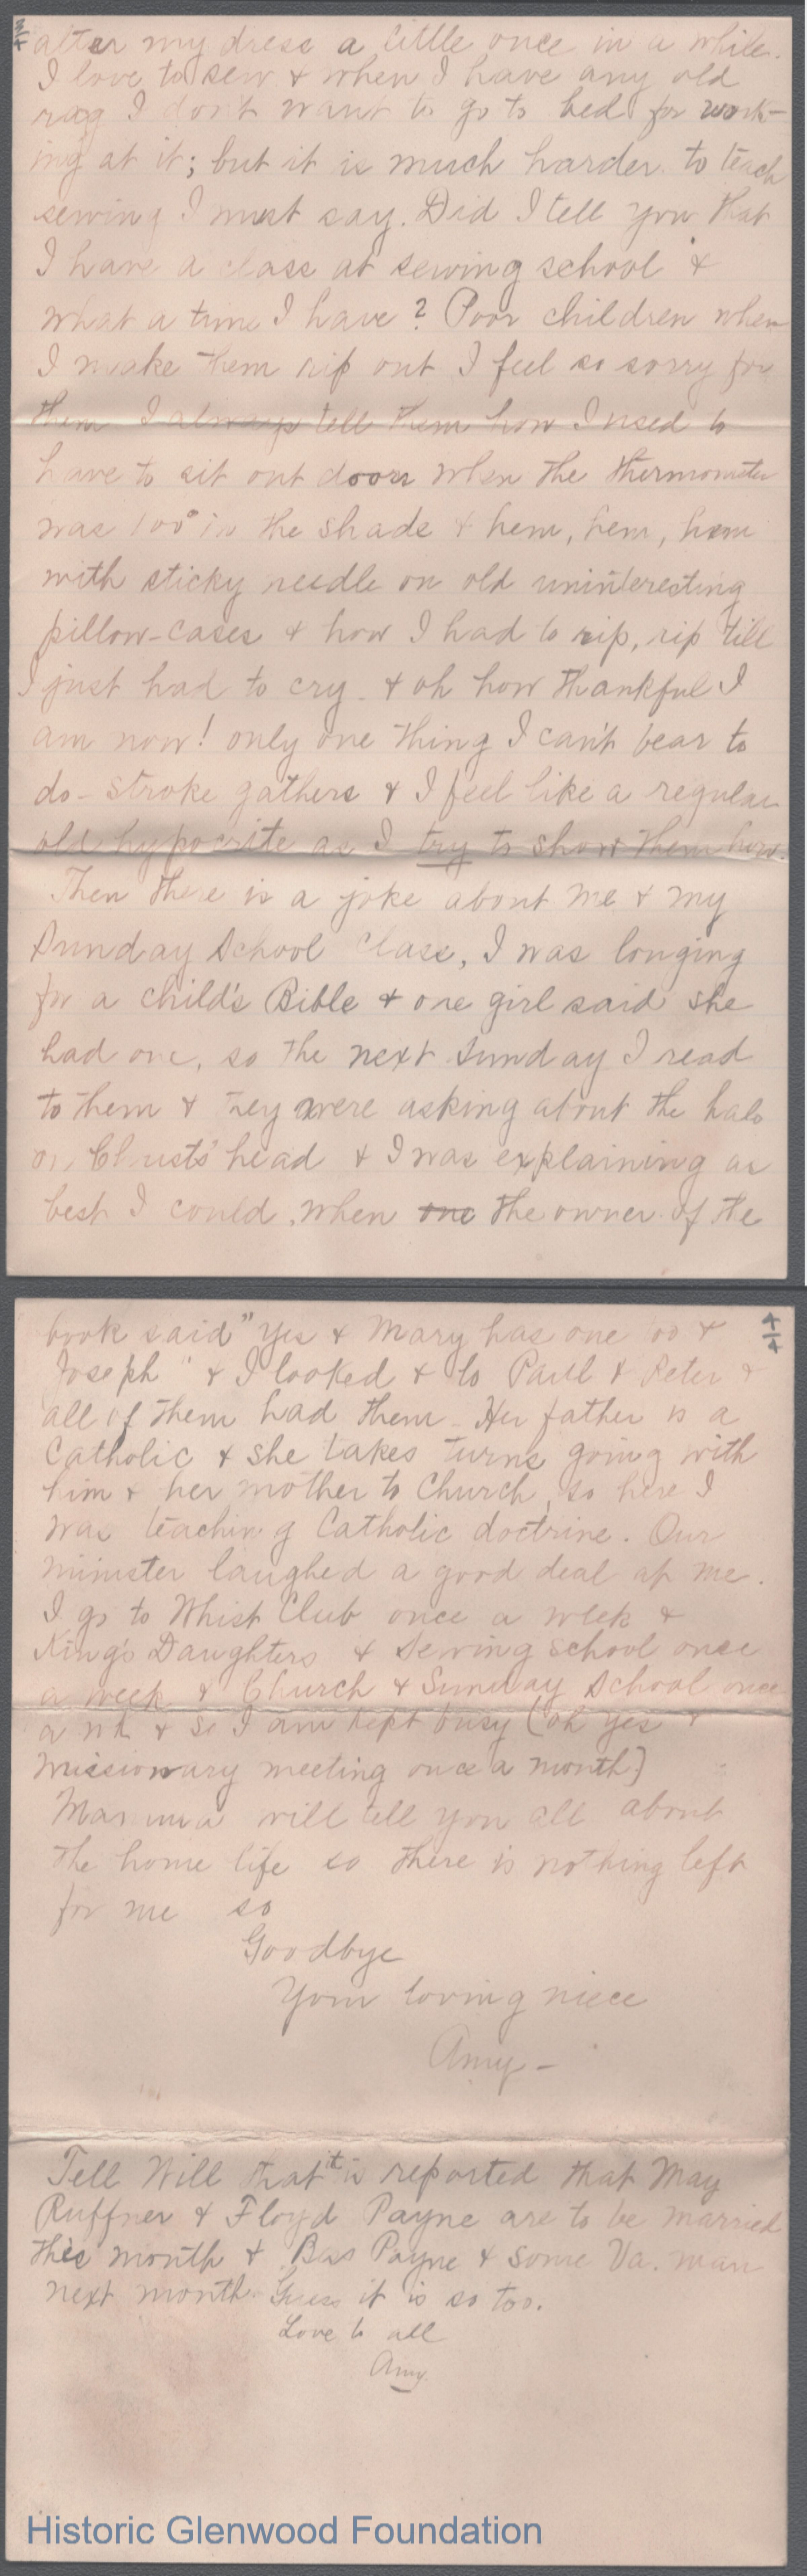 3/4
alter my dress a little once in a while.
I love to sew & when I have any old
rag I don't want to go to bed for work-
ing at it; but it is much harder to teach
sewing I must say. Did I tell you that
I have a class at sewing school &
what a time I have? Poor children when
I make them rip out I feel so sorry for
them I always tell them how I used to
have to sit out doors when the thermometer
was 100° in the shade & hem, hem, hem
with sticky needle on old uninteresting
pillow-cases & how I had to rip, rip till
I just had to cry - & oh how thankful I
am now! only one thing I can't bear to
do - stroke gathers & I feel like a regular
old hypocrite as I try to show them how.
Then there is a joke about me & my
Sunday School Class, I was longing
for a child's Bible & one girl said she
had one, so the next Sunday I read
to them & they were asking about the halo
on Christs' head & I was explaining as
best I could, when one the owner of the
4/4
book said "Yes & Mary has one too &
Joseph" & I looked & lo Paul & Peter &
all of them had them - Her father is a
Catholic & she takes turns going with
him & her mother to Church, so here I
was teaching Catholic doctrine. Our
minister laughed a good deal at me.
I go to Whist Club once a week &
King's Daughters & Sewing School once
a week & Church & Sunday School once
a wk & so I am kept busy (oh yes &
missionary meeting once a month)
Mamma will tell you all about
the home life so there is nothing left
for me so
Goodbye
Your loving niece
Amy -
Tell Will that it is reported that May
Ruffner & Floyd Payne are to be married
this month & Bas Payne & some Va. man
next month. Guess it is so too.
Love to all
Amy
Historic Glenwood Foundation